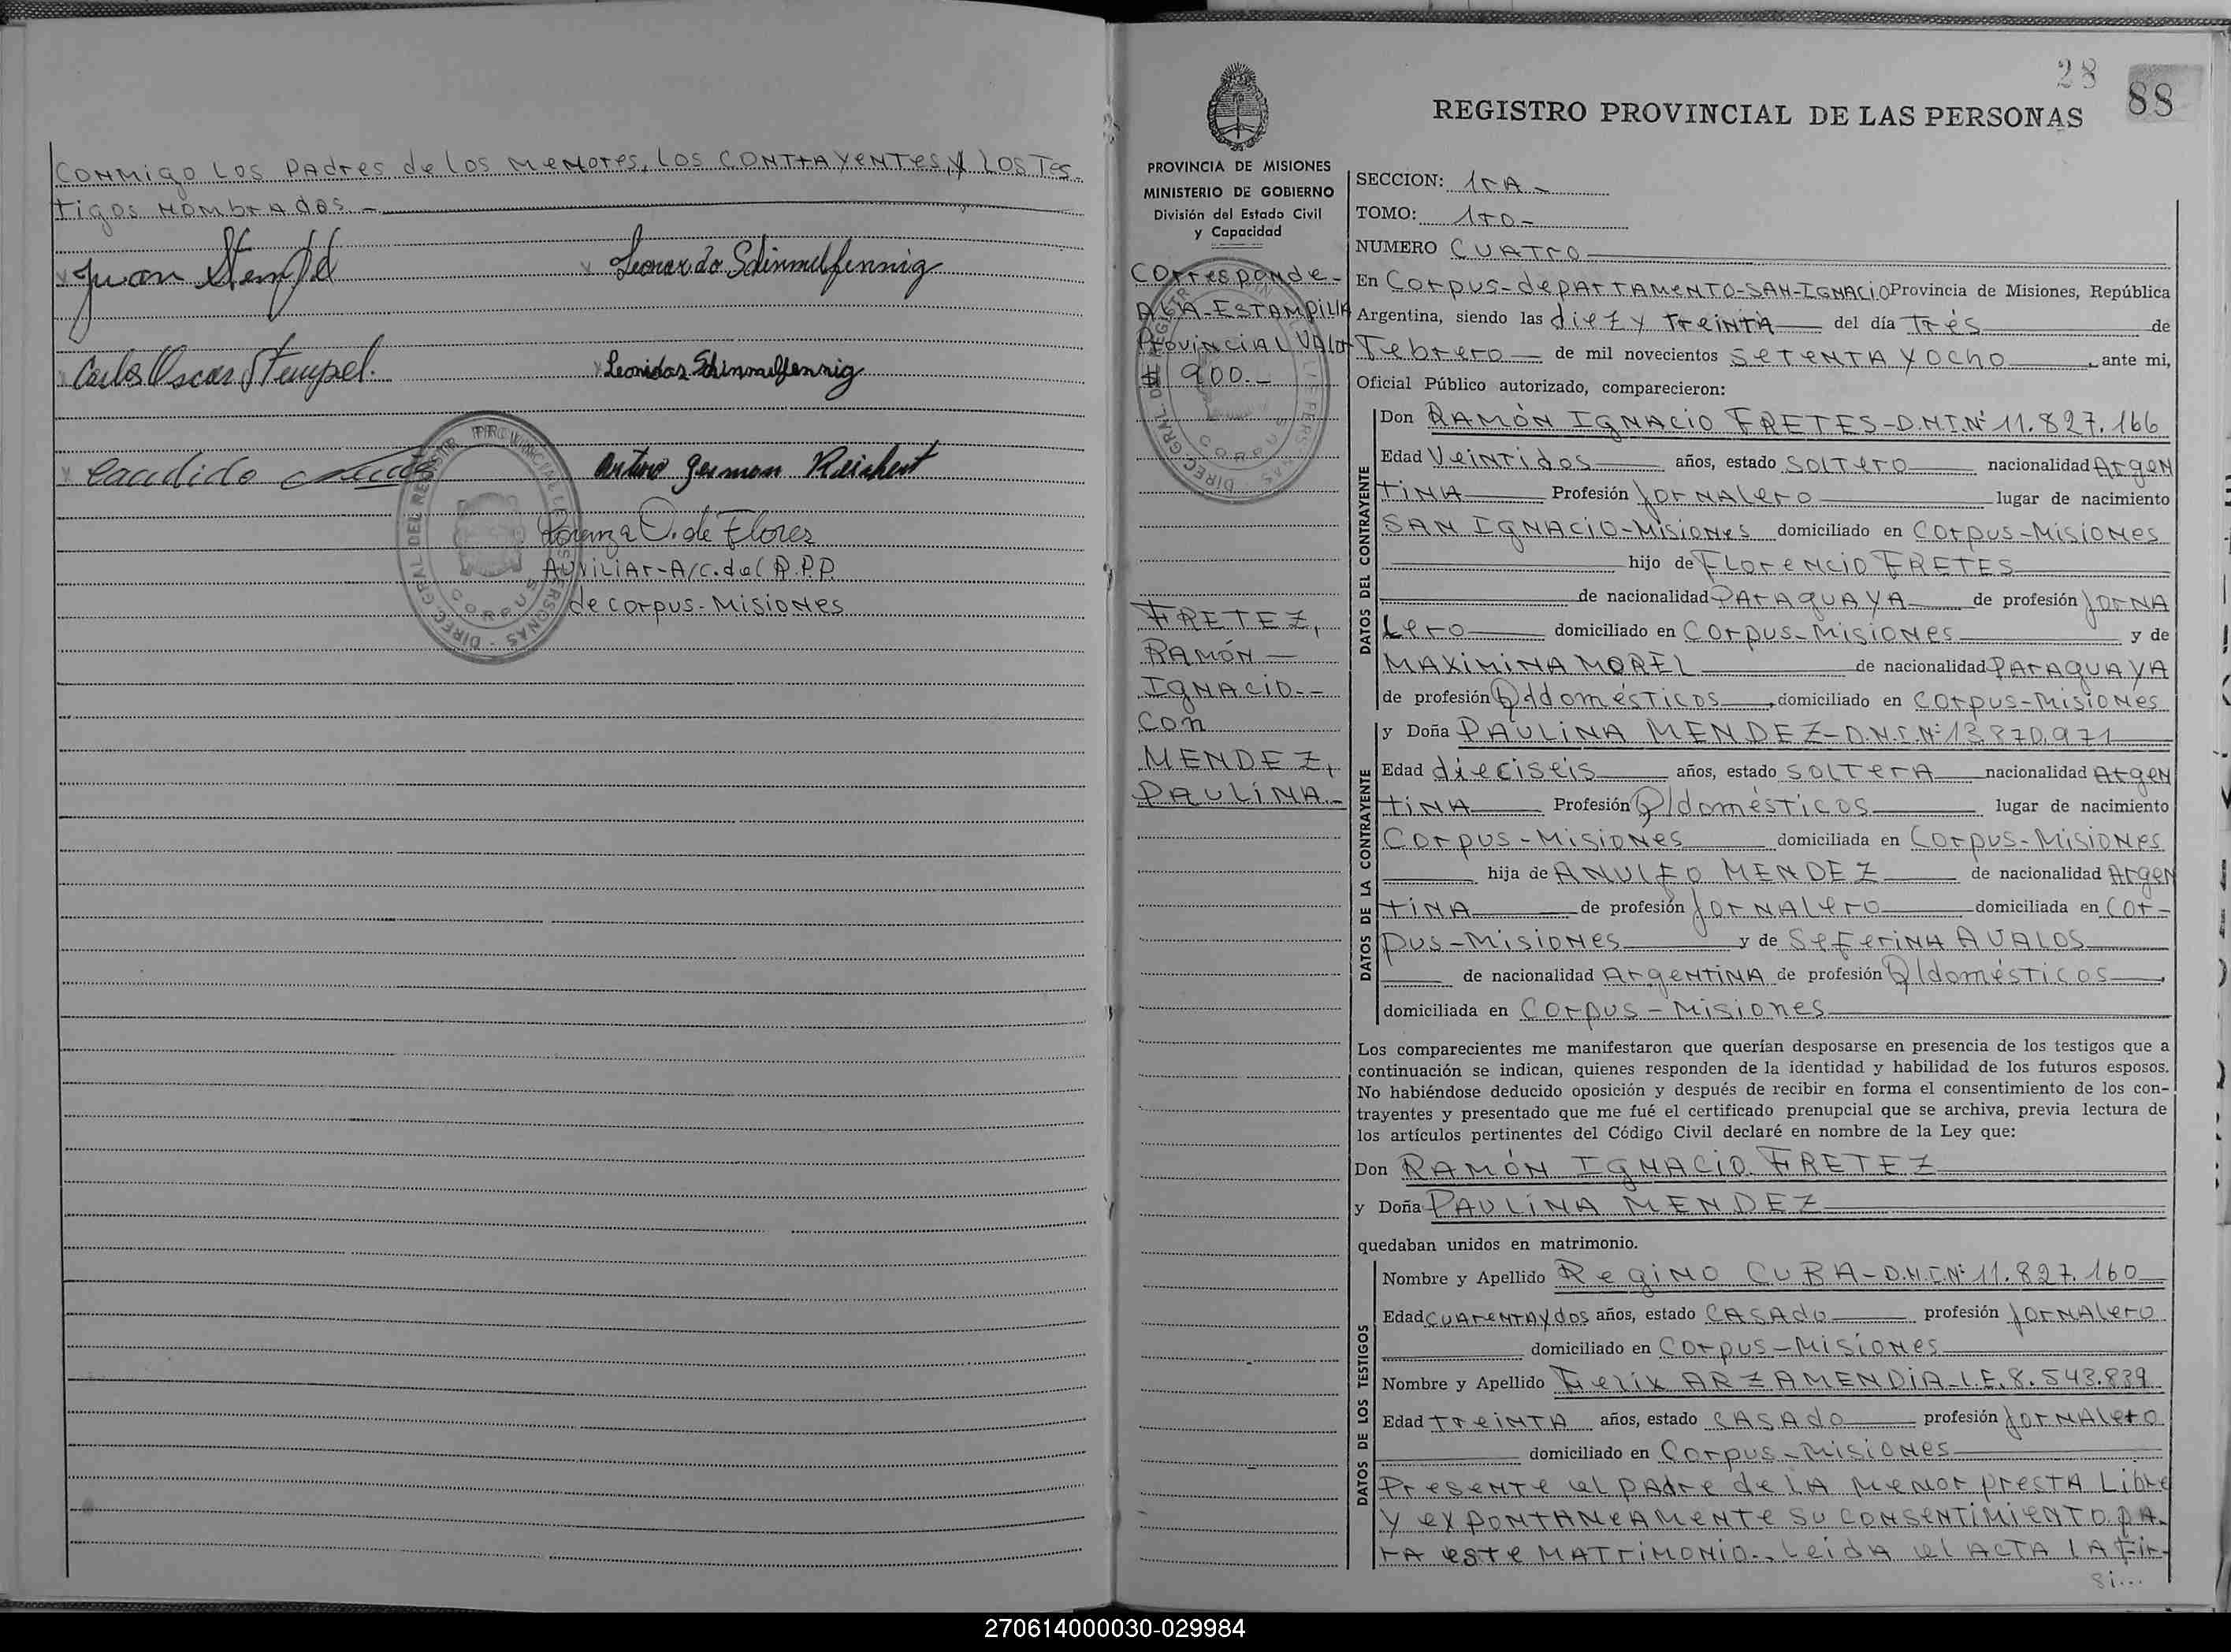 Conmigo los padres de los menores, los contrayentes, y los tes-
tigos nombrados.-
Juan Stempel
Leonardo Schimmelfennig
Carlos Oscar Stempel.
Leonidas Schimmelfennig
Candido
Arturo German Reichert
Lorenza O. de Flores
Auxiliar-A/c. del R.P.P.
de Corpus-Misiones
28
88
REGISTRO PROVINCIAL DE LAS PERSONAS
PROVINCIA DE MISIONES
MINISTERIO DE GOBIERNO
División del Estado Civil
y Capacidad
Corresponde-
A LA-ESTAMPILLA
Provincial Valor
$ 900.-
FRETEZ,
RAMÓN-
IGNACIO.-
con
MENDEZ,
PAULINA.-
SECCION: 1rA-
TOMO: 1ro-
NUMERO CUATRO
En Corpus-departamento-San-Ignacio Provincia de Misiones, República
Argentina, siendo las diez y treinta del día Tres de
Febrero de mil novecientos setenta y ocho, ante mi,
Oficial Público autorizado, comparecieron:
DATOS DEL CONTRAYENTE
Don RAMÓN IGNACIO FRETES-D.N.I.Nº 11.827.166
Edad Veintidos años, estado soltero nacionalidad Argen
tina Profesión Jornalero lugar de nacimiento
San Ignacio-Misiones domiciliado en Corpus-Misiones
hijo de Florencio FRETES
de nacionalidad Paraguaya de profesión Jorna
lero domiciliado en Corpus-Misiones y de
MAXIMINA MOREL de nacionalidad Paraguaya
de profesión Q/domésticos, domiciliado en Corpus-Misiones
DATOS DE LA CONTRAYENTE
y Doña PAULINA MENDEZ-D.N.I.Nº 13.870.971
Edad dieciseis años, estado soltera nacionalidad Argen
tina Profesión Q/domésticos lugar de nacimiento
Corpus-Misiones domiciliada en Corpus-Misiones
hija de ANULFO MENDEZ de nacionalidad Argen
tina de profesión Jornalero domiciliada en Cor-
pus-Misiones y de Seferina AVALOS
de nacionalidad Argentina de profesión Q/domésticos,
domiciliada en Corpus-Misiones
Los comparecientes me manifestaron que querían desposarse en presencia de los testigos que a
continuación se indican, quienes responden de la identidad y habilidad de los futuros esposos.
No habiéndose deducido oposición y después de recibir en forma el consentimiento de los con-
trayentes y presentado que me fué el certificado prenupcial que se archiva, previa lectura de
los artículos pertinentes del Código Civil declaré en nombre de la Ley que:
Don RAMÓN IGNACIO FRETEZ
y Doña PAULINA MENDEZ
quedaban unidos en matrimonio.
DATOS DE LOS TESTIGOS
Nombre y Apellido Regino CUBA-D.N.I.Nº 11.827.160
Edad cuarenta y dos años, estado casado profesión Jornalero
domiciliado en Corpus-Misiones
Nombre y Apellido Felix ARZAMENDIA-L.E. 8.543.839
Edad treinta años, estado casado profesión Jornalero
domiciliado en Corpus-Misiones
Presente el padre de la menor presta libre
y expontaneamente su consentimiento pa-
ra este matrimonio.-Leida el acta la fir-
si...
270614000030-029984